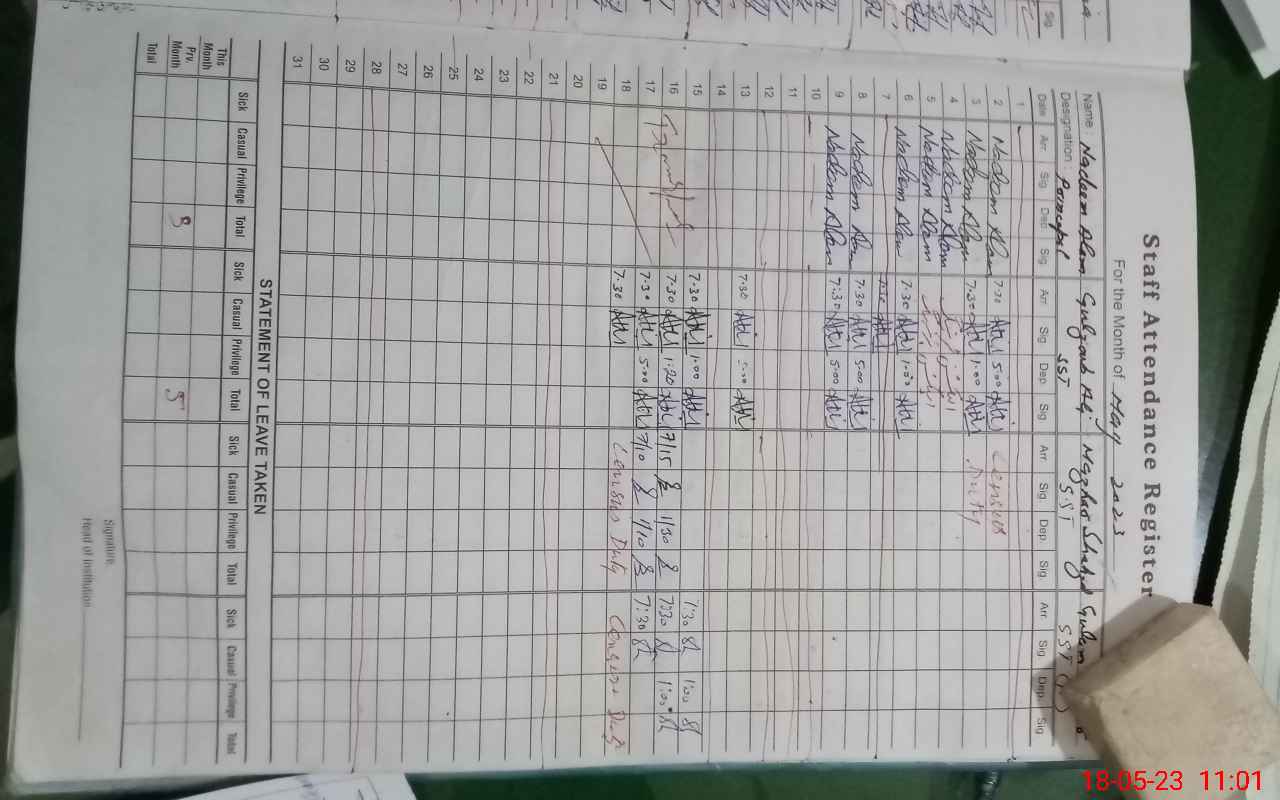 Staff Attendance Register
For the Month of May 2023
Name : Nadeem Alam Gulzaib Ali Mazhar Shahzad Gulam
Designation : Principal SST S.ST SST
Date Arr Sig Dep Sig Arr Sig Dep Sig Arr Sig Dep Sig Arr Sig Dep Sig
1
2 Nadeem Alam 7.30 5.00 Census
3 Nadeem Alam 7.30 1.00 Duty
4 Nadeem Alam
5 Nadeem Alam
6 Nadeem Alam 7.30 1.00
7 7.30
8 Nadeem Alam 7.30 5.00
9 Nadeem Alam 7.30 5.00
10
11
12
13 7.30 5.00
14
15 7.30 1.00 7:30 1:00
16 7.30 1.20 7/15 1/30 7:30 1:00
17 7.30 5.00 7/10 1/10 7:30
18 7.30 Census Duty
19
20
21
22
23
24
25
26
27
28
29
30
31
STATEMENT OF LEAVE TAKEN
Sick Casual Privilege Total Sick Casual Privilege Total Sick Casual Privilege Total Sick Casual Privilege Total
This Month
Prv. Month 3 5
Total
Signature.
Head of Institution
18-05-23 11:01